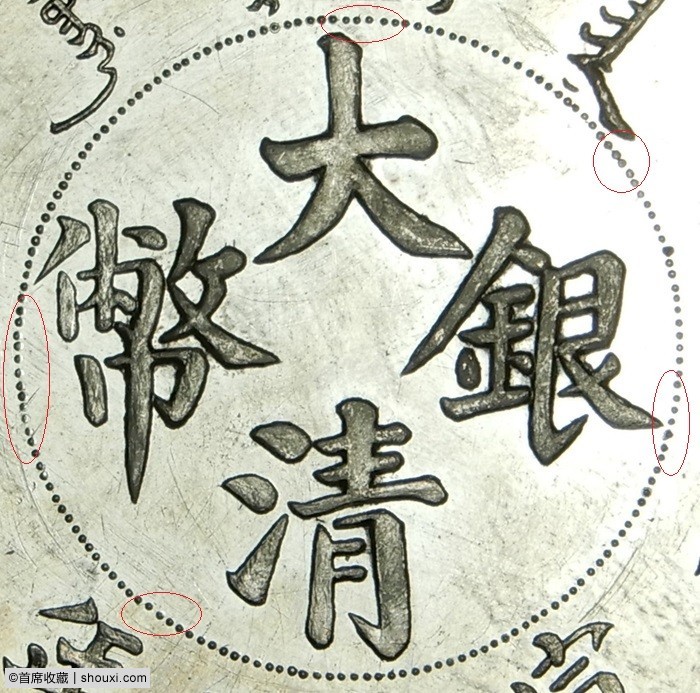 大清銀幣
©首席收藏 | shouxi.com